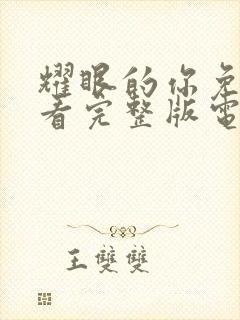 耀眼的你免
看完整版電
王雙雙